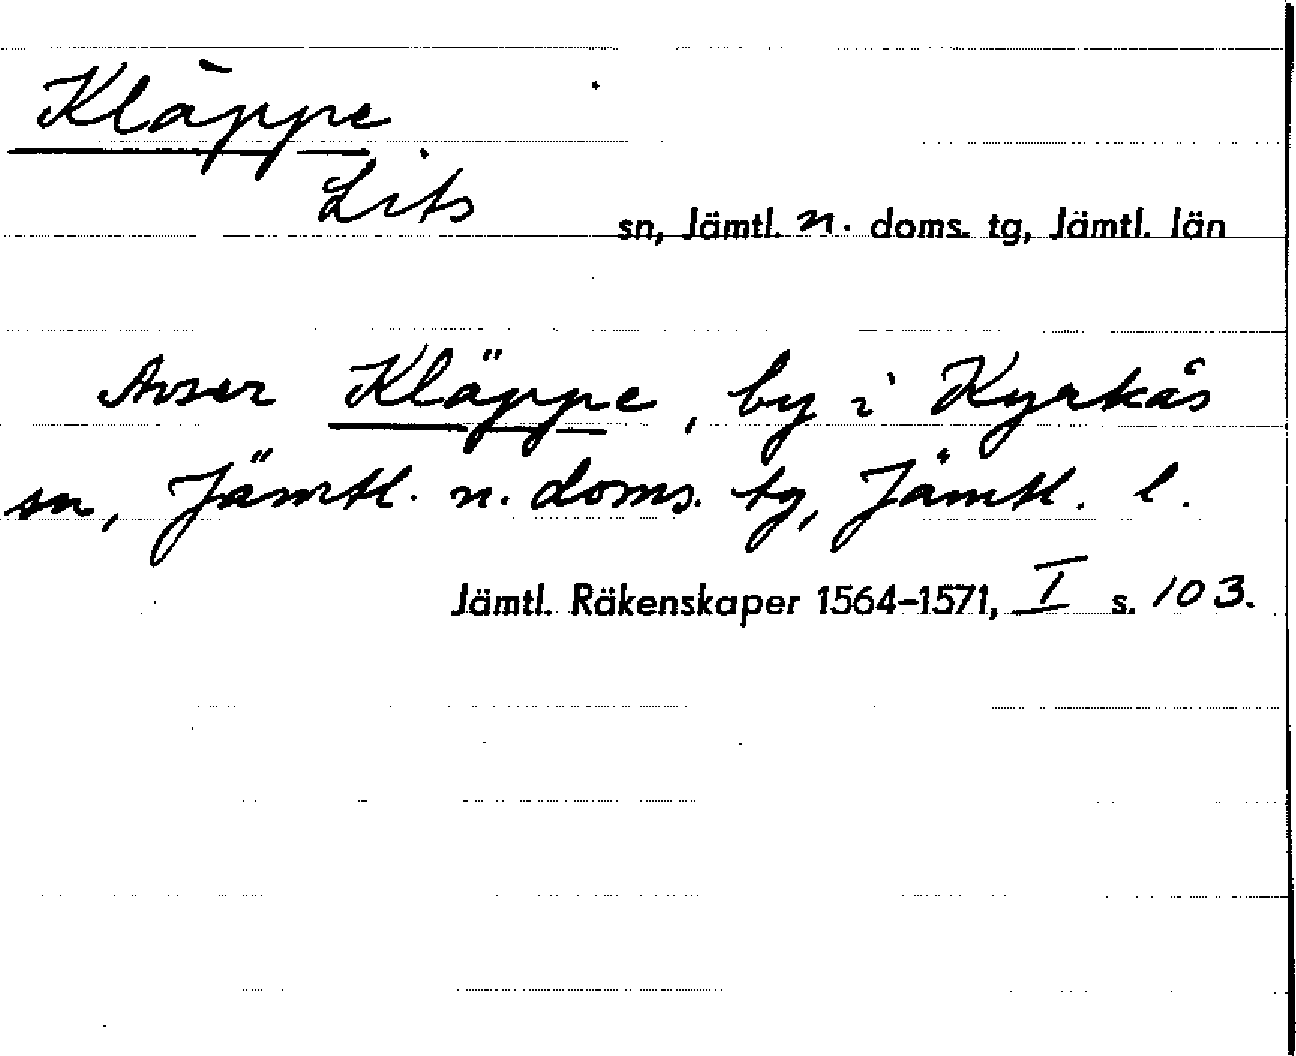 Kläppe
Lits sn, Jämtl. n. doms. tg, Jämtl. län
Avser Kläppe, by i Kyrkås
sn, Jämtl. n. doms. tg, Jämtl. l.
Jämtl. Räkenskaper 1564-1571, I s. 103.